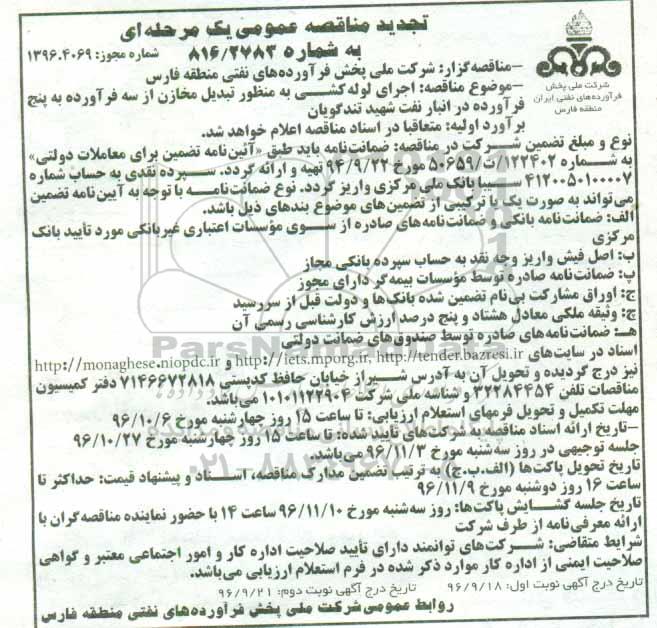 تجدید مناقصه عمومی یک مرحله‌ای
به شماره ۸۱۶/۲۷۸۳
شماره مجوز: ۱۳۹۶.۴۰۶۹
شرکت ملی پخش
فرآورده‌های نفتی ایران
منطقه فارس
–مناقصه‌گزار: شرکت ملی پخش فرآورده‌های نفتی منطقه فارس
–موضوع مناقصه: اجرای لوله‌کشــی به منظور تبدیل مخازن از سه فرآورده به پنج
فرآورده در انبار نفت شهید تندگویان
برآورد اولیه: متعاقبا در اسناد مناقصه اعلام خواهد شد.
نوع و مبلغ تضمین شــرکت در مناقصه: ضمانت‌نامه باید طبق «آئین‌نامه تضمین برای معاملات دولتی»
به شماره ۱۲۲۴۰۲/ت/۵۰۶۵۹ مورخ ۹۴/۹/۲۲ تهیه و ارائه گردد. سـپرده نقدی به حساب شماره
۴۱۲۰۰۵۰۱۰۰۰۰۷ سـیبا بانک ملی مرکزی واریز گردد. نوع ضمانت‌نامــه با توجه به آیین‌نامه تضمین
می‌تواند به صورت یک یا ترکیبی از تضمین‌های موضوع بندهای ذیل باشد.
الف: ضمانت‌نامه بانکی و ضمانت‌نامه‌های صادره از ســوی مؤسسات اعتباری غیربانکی مورد تأیید بانک
مرکزی
ب: اصل فیش واریز وجه نقد به حساب سپرده بانکی مجاز
پ: ضمانت‌نامه صادره توسط مؤسسات بیمه‌گر دارای مجوز
ج: اوراق مشارکت بی‌نام تضمین شده بانک‌ها و دولت قبل از سررسید
چ: وثیقه ملکی معادل هشتاد و پنج درصد ارزش کارشناسی رسمی آن
هـ: ضمانت‌نامه‌های صادره توسط صندوق‌های ضمانت دولتی
اسناد در سایت‌های http://iets.mporg.ir, http://tender.bazresi.ir و http://monaghese.niopdc.ir
نیز درج گردیده و تحویل آن به آدرس شــیراز خیابان حافظ کدپستی ۷۱۴۶۶۷۲۸۱۸ دفتر کمیسیون
مناقصات تلفن ۳۲۲۸۴۴۵۴ و شناسه ملی شرکت ۱۰۱۰۱۱۲۲۹۰۴ می‌باشد.
مهلت تکمیل و تحویل فرمهای استعلام ارزیابی: تا ساعت ۱۵ روز چهارشنبه مورخ ۹۶/۱۰/۶
–تاریخ ارائه اسناد مناقصه به شرکت‌های تأیید شده: تا ساعت ۱۵ روز چهارشنبه مورخ ۹۶/۱۰/۲۷
جلسه توجیهی در روز سه‌شنبه مورخ ۹۶/۱۱/۳ می‌باشد.
تاریخ تحویل پاکت‌ها (الف.ب.ج) به ترتیب تضمین مدارک مناقصه، اسـناد و پیشنهاد قیمت: حداکثر تا
ساعت ۱۶ روز دوشنبه مورخ ۹۶/۱۱/۹
تاریخ جلسه گشــایش پاکت‌ها: روز سه‌شنبه مورخ ۹۶/۱۱/۱۰ ساعت ۱۴ با حضور نماینده مناقصه‌گران با
ارائه معرفی‌نامه از طرف شرکت
شرایط متقاضی: شــرکت‌های توانمند دارای تأیید صلاحیت اداره کار و امور اجتماعی معتبر و گواهی
صلاحیت ایمنی از اداره کار موارد ذکر شده در فرم استعلام ارزیابی می‌باشد.
تاریخ درج آگهی نوبت اول: ۹۶/۹/۱۸ تاریخ درج آگهی نوبت دوم: ۹۶/۹/۲۱
روابط عمومی شرکت ملی پخش فرآورده‌های نفتی منطقه فارس